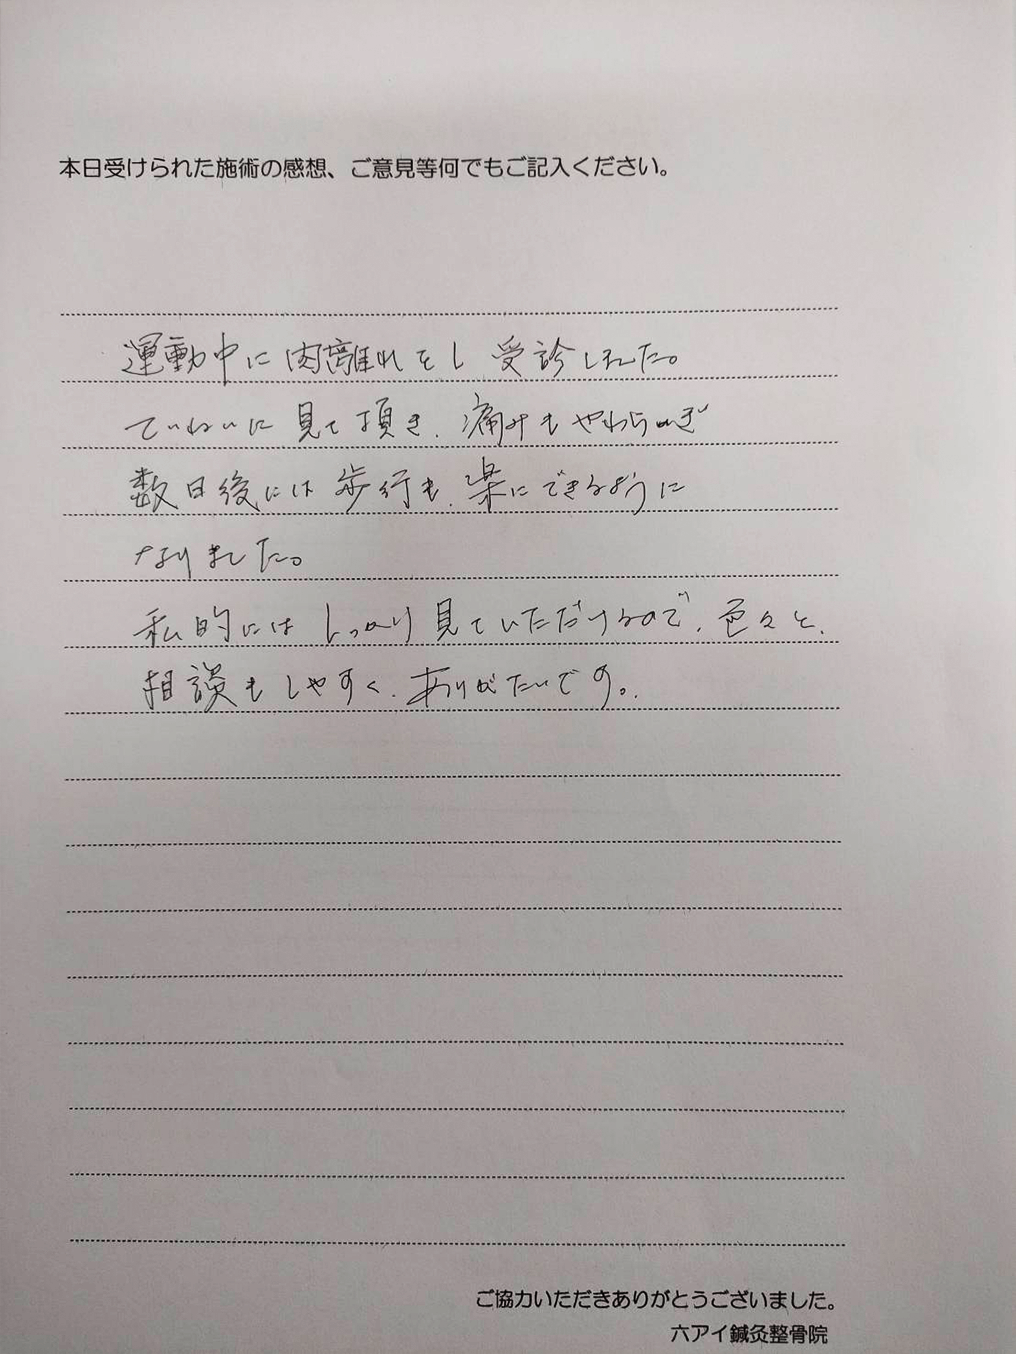 本日受けられた施術の感想、ご意見等何でもご記入ください。
運動中に肉離れをし 受診しました。
ていねいに 見て頂き、痛みもやわらぎ
数日後には 歩行も、楽にできるように
なりました。
私的には しっかり見ていただけるので、色々と、
相談もしやすく、ありがたいです。
ご協力いただきありがとうございました。
六アイ鍼灸整骨院